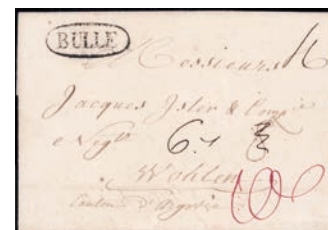 BULLE
à Messieurs
Jacques Isler & Comp.ie
e Negts 6.
Wohlen
Canton d'Argovie